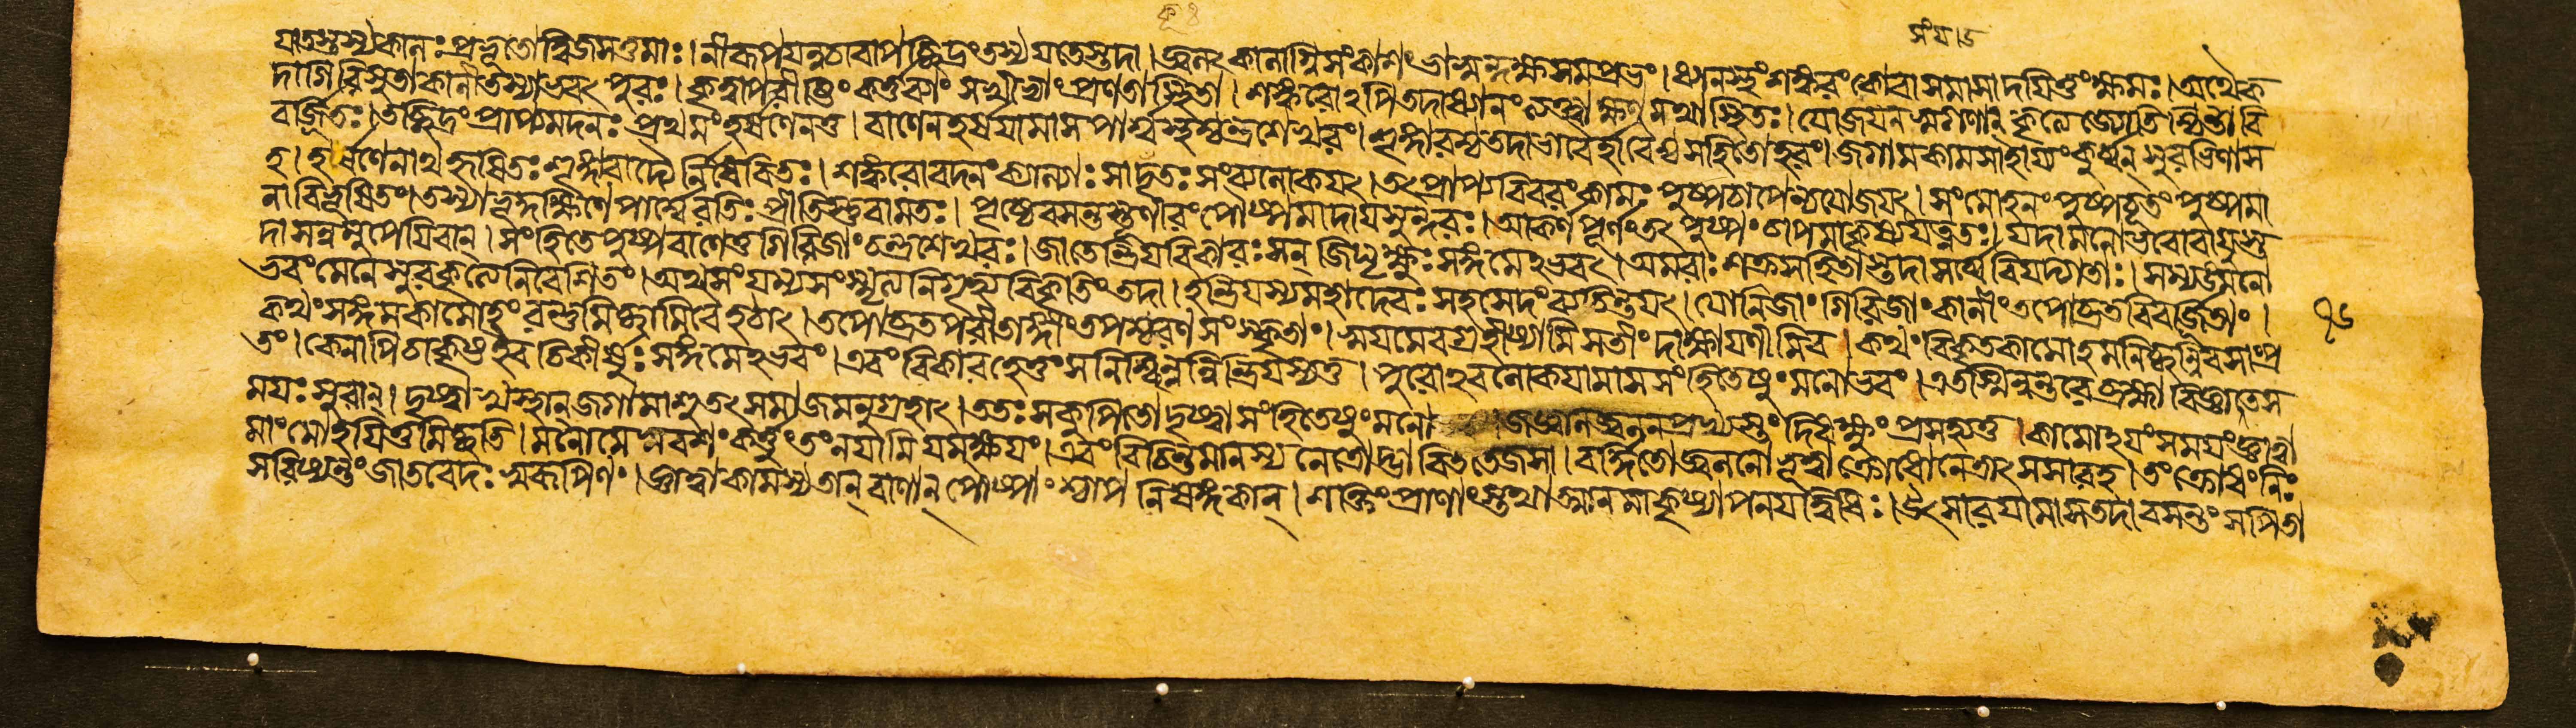 যাতস্তস্য কালঃ প্রভূতো দ্বিজসত্তমাঃ। নীরূপয়ন্নঠাবাপচ্ছিদ্রং তস্য যতেস্তদা। জ্বলৎকালাগ্নিসংকাশং ভাস্বল্লক্ষসমপ্রভং। ধ্যানস্থং শঙ্করং কোবা সমাসাদয়িতুং ক্ষমঃ। অথৈক
দা গিরিসুতা কালী তস্যাভবৎ পুরঃ। কৃত্বা পরীষ্টিং সখীভ্যাং প্রণতা স্থিতা। শঙ্করোঽপি তদা ধ্যানং ত্যক্ত্বা ক্ষণমথাস্থিতঃ। যোজয়ন স্বগণান্ কৃত্যে জ্যোতিশ্চিন্তাবি
বর্জিতঃ। তচ্ছিদ্রং প্রাপ্য মদনঃ প্রথমং হর্ষণেন তু। বাণেন হর্ষয়ামাস পার্শ্বস্থশ্চন্দ্রশেখরং। শৃঙ্গারশ্চ তদা ভাবৈর্হাবৈশ্চ সহিতো হরং। জগাম কামসাহায্যং কুর্ব্বন্ সুরভিণা স
হ। হর্ষণেনাথ হৃষিতঃ শৃঙ্গারাদৌ র্নিষেবিতঃ। শঙ্করো বদনং কাল্যাঃ সাদৃতঃ সংব্যলোকয়ৎ। তৎ প্রাপ্য বিবরং কামঃ পুষ্পচাপেন্যযোজয়ৎ। সংমোহনং পুষ্পবৃতং পুষ্পমা
লাবিভূষিতং। তস্যাভূদ্দক্ষিণে পার্শ্বে রতিঃ প্রীতিস্তু বামতঃ। পৃষ্ঠে বসন্তস্তূণীরং পৌষ্পমাদায় সুন্দরঃ। আকর্ণপূর্ণং তৎ পুষ্পং চাপমাকৃষ্য যত্নতঃ। যদা মনোভবো বায়ুস্ত
দাসন্নমুপেয়িবান্। সংহিতে পুষ্পবাণে তু গিরিজাং চন্দ্রশেখরঃ। জাতেন্দ্রিয়বিকারঃ সন্ জিঘৃক্ষুঃ সঙ্গমেঽভবৎ। অমরাঃ শক্রসহিতাস্তদা সর্ব্বে বিয়দ্গতাঃ। সম্যঙ্মনো
ভবং মেনে সুরকৃত্যে নিবেশিতং। অথ সংযম্য সংস্মৃত্য নিগৃহ্য বিকৃতিং তদা। ইন্দ্রিয়স্য মহাদেবঃ সহসেদং ব্যচিন্তয়ৎ। যোনিজাং গিরিজাং কালীং তপোব্রতবিবর্জিতাং।
কথং সঙ্গমকামোহং রন্তুমিচ্ছামি বৈ হঠাৎ। তপোব্রতপরীতাঙ্গীং তপশ্চরণসংস্কৃতাং। স্বয়মেব গ্রহীষ্যামি সতীং দাক্ষায়ণীমিব। কথং বিকৃতকামোঽহমনিচ্ছন্নিব সাংপ্র
তং। কেনাপি চাকৃষ্ট ইব চিকীর্ষুঃ সঙ্গমেঽভবং। এবং বিকারহেতুং স নিশ্চিন্বন্নিন্দ্রিয়স্য তু। পুরোঽবলোকয়ামাস সংহিতেষুং মনোভবং। এতস্মিন্নন্তরে ব্রহ্মা বিজ্ঞাতে স
ময়ঃ সুরান্। দৃষ্ট্বা খস্থান্ জগামাশু তৎ সমাজমনুগ্রহাৎ। ততঃ স কুপিতো দৃষ্ট্বা সংহিতেষুং মনো । জজ্বাল জ্বলনপ্রখ্যস্তং দিধক্ষুঃ প্রসহ্য তু। কামোঽয়ং সময়ং জ্ঞাত্বা
মাং মোহয়িতুমিচ্ছতি। মনো মে স্ববশং কর্ত্তুং তং নয়ামি যমক্ষয়ং। এবং বিচিন্তমানস্য নেত্রোদ্ভাবিততেজসা। বর্দ্ধিতো জ্বলনো ভূত্বা ক্রোধো নেত্রাৎ সসার হ। তং ক্রোধং নিঃ
সরিষ্যন্তং জাতবেদঃ স্বরূপিণং। জ্ঞাত্বা কামস্য তান্ বাণান্ পৌষ্পাংশ্চাপ নিষেঙ্গকান্। শক্তিং প্রাণাংস্তথাত্মানমাকৃষ্যাপনয়দ্বিধিঃ। উৎসারয়ামাস তদা বসন্তং স পিতা